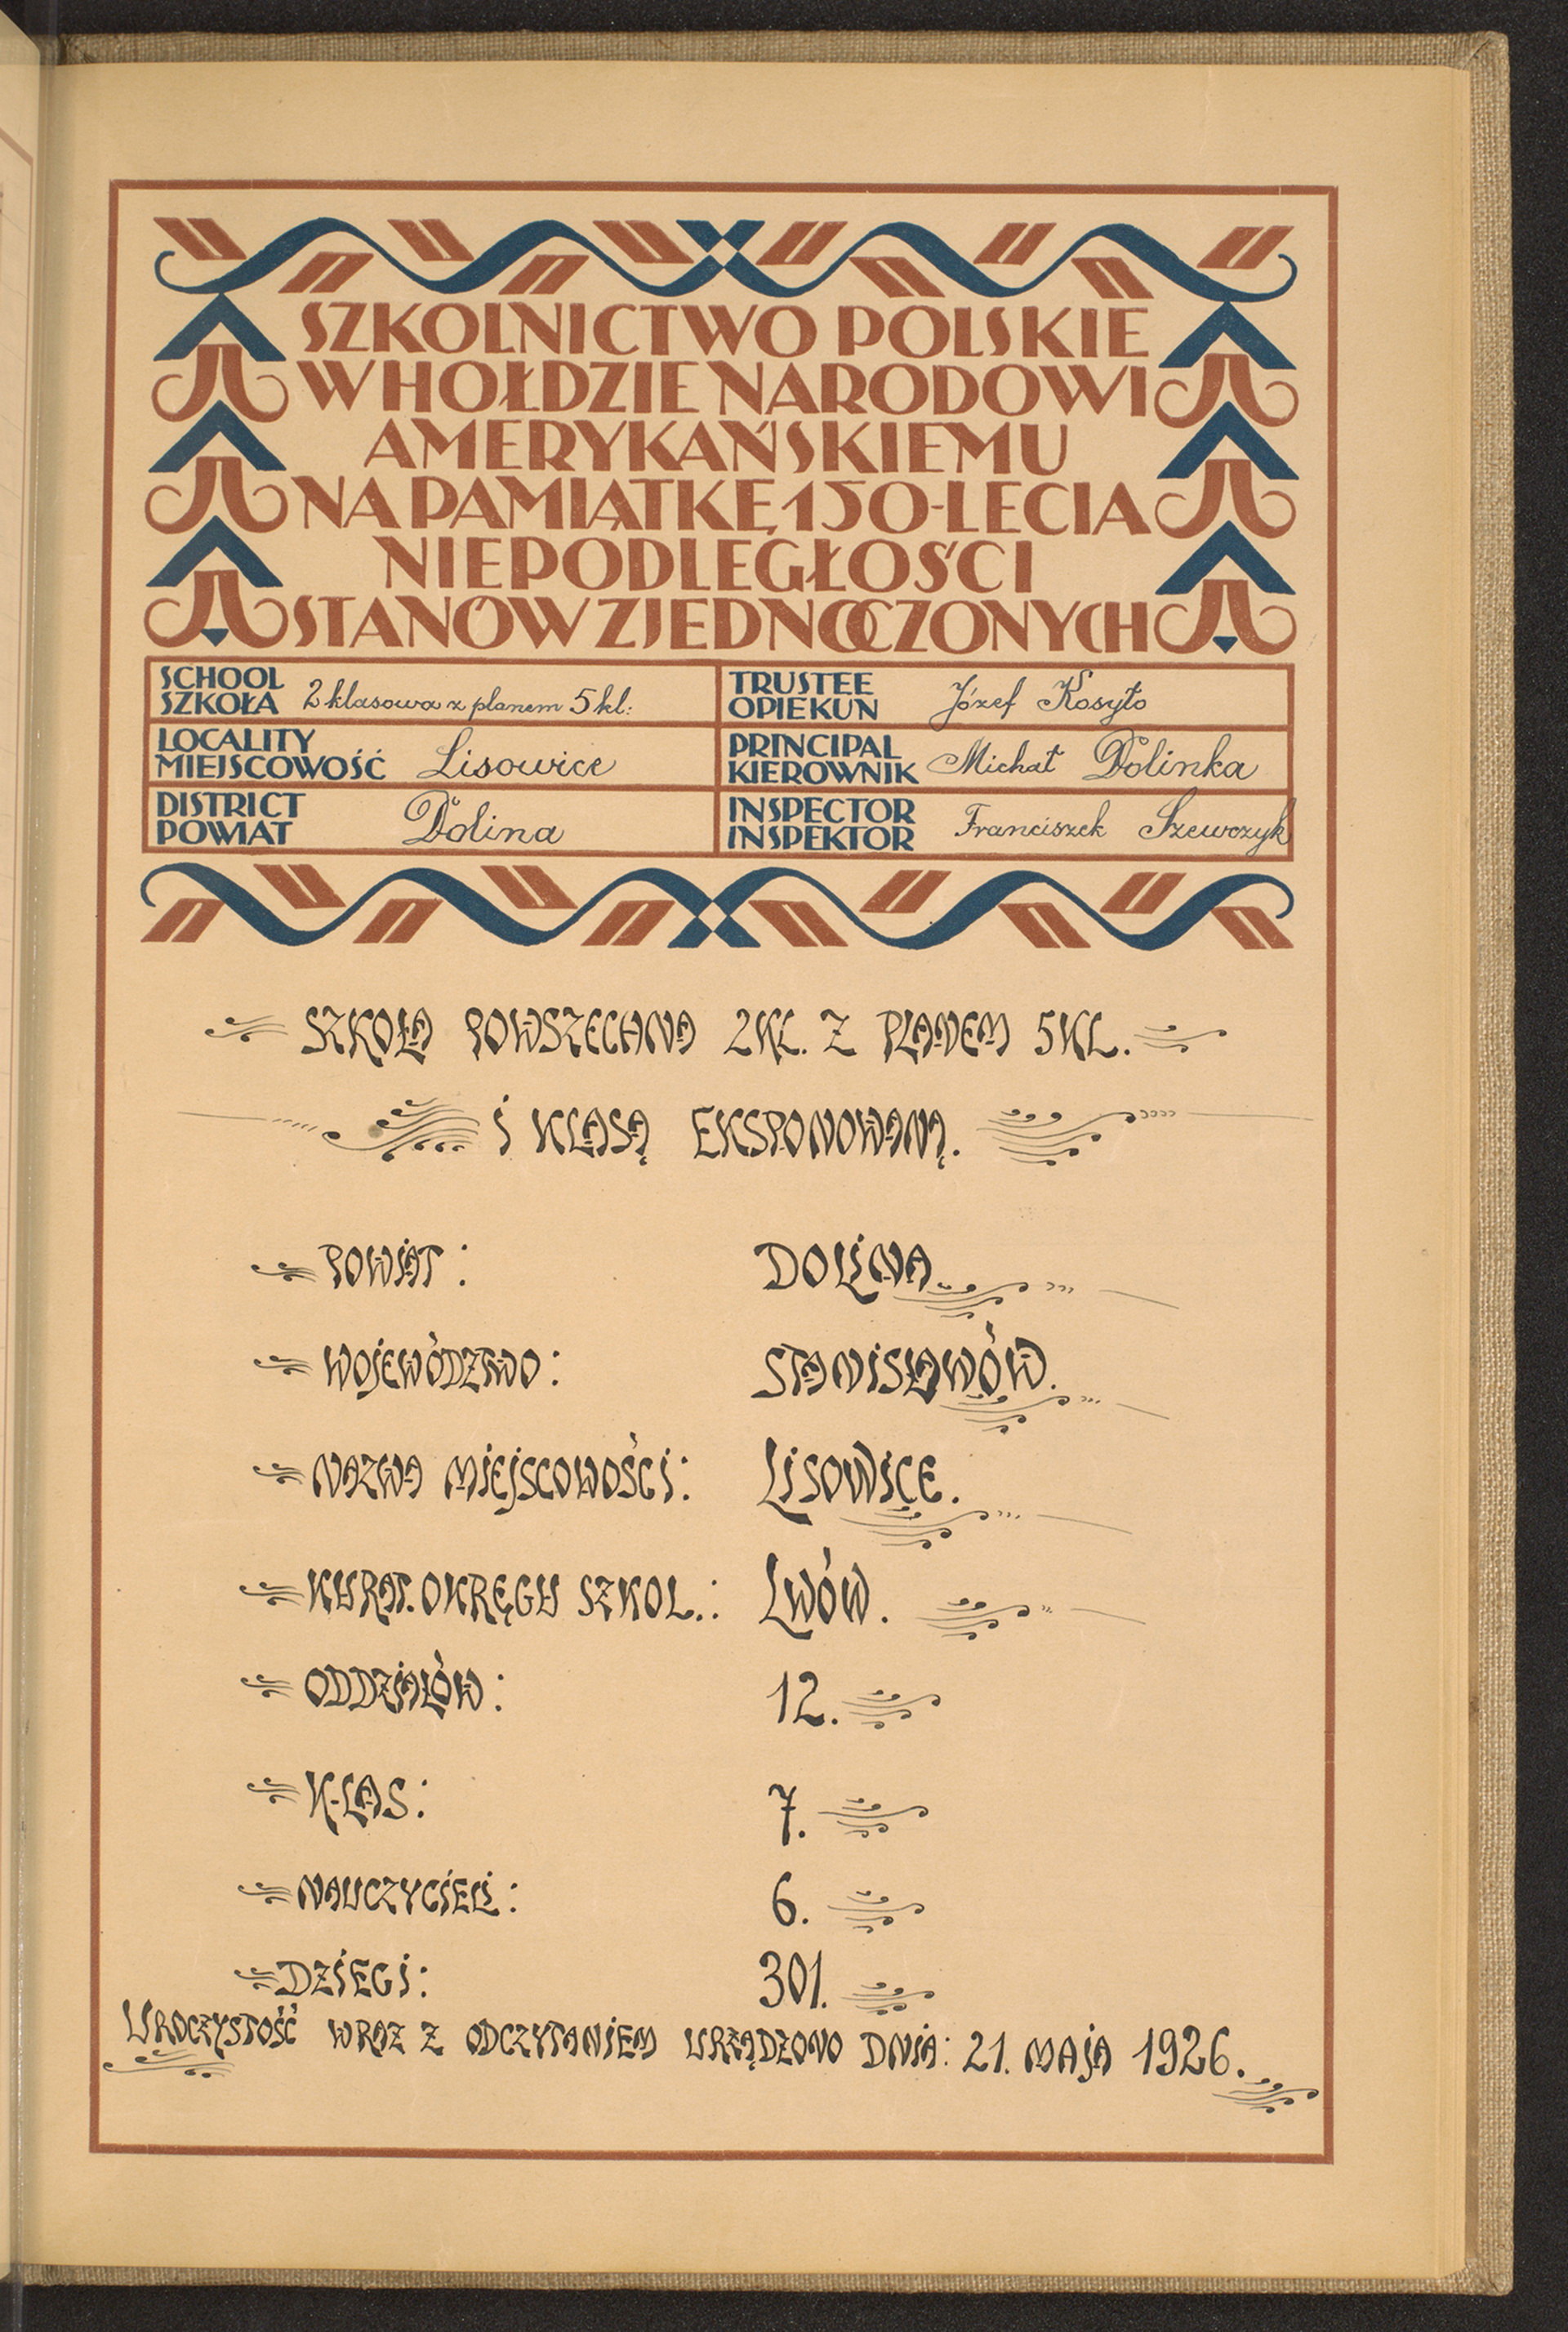 SZKOLNICTWO POLSKIE
W HOŁDZIE NARODOWI
AMERYKAŃSKIEMU
NA PAMIĄTKĘ 150-LECIA
NIEPODLEGŁOŚCI
STANÓW ZJEDNOCZONYCH
SCHOOL
SZKOŁA 2 klasowa z planem 5 kl:
TRUSTEE
OPIEKUN Józef Kosyło
LOCALITY
MIEJSCOWOŚĆ Lisowice
PRINCIPAL
KIEROWNIK Michał Dolinka
DISTRICT
POWIAT Dolina
INSPECTOR
INSPEKTOR Franciszek Szewczyk
SZKOŁA POWSZECHNA 2 KL. Z PLANEM 5 KL.
i KLASĄ EKSPONOWANĄ.
POWiAT: DOLiNA.
WOjEWÓDZTWO: STANiSŁAWÓW.
NAZWA MiEjSCOWOŚCi: LiSOWiCE.
KURAT. OKRĘGU SZKOL.: LWÓW.
ODDZiAŁÓW: 12.
KLAS: 7.
NAUCZYCiELi: 6.
DZiECi: 301.
UROCZYSTOŚĆ WRAZ Z ODCZYTANiEM URZĄDZONO DNiA: 21. MAjA 1926.